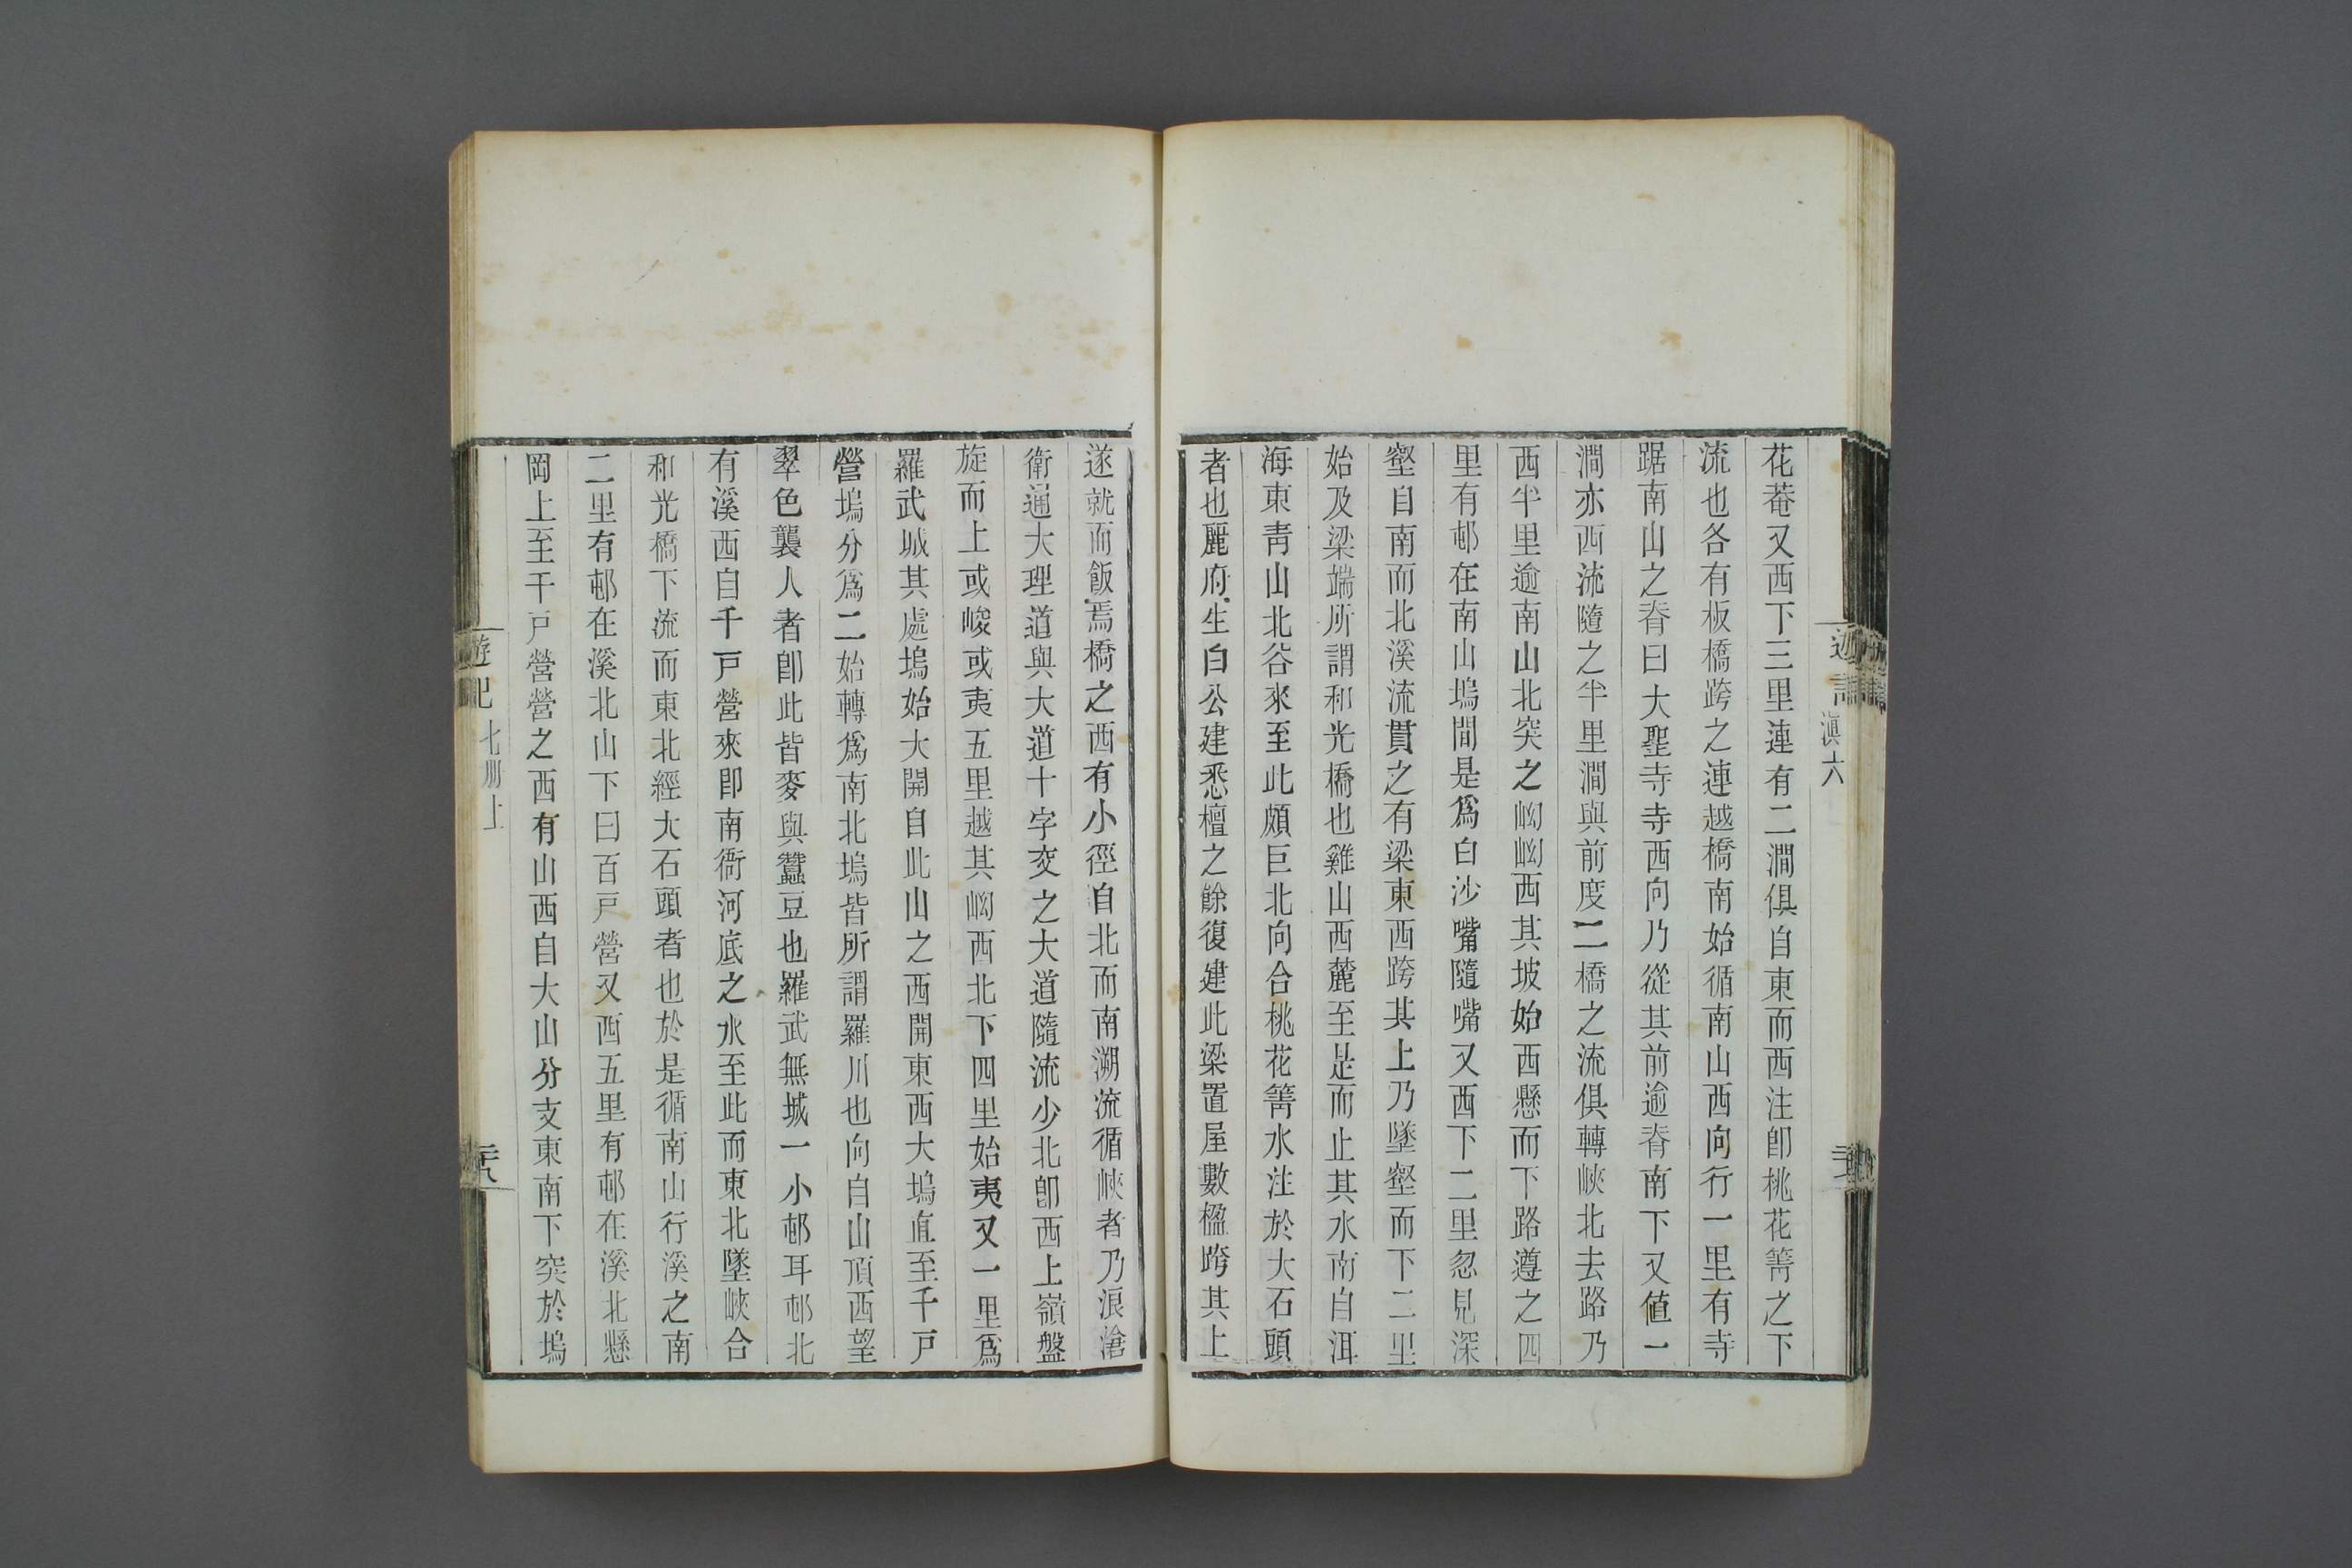 滇六
花菴又西下三里連有二澗俱自東而西注卽桃花箐之下
流也各有板橋跨之連越橋南始循南山西向行一里有寺
踞南山之脊曰大聖寺寺西向乃從其前逾脊南下又値一
澗亦西流隨之半里澗與前度二橋之流俱轉峽北去路乃
西半里逾南山北突之㘭㘭西其坡始西懸而下路遵之四
里有邨在南山塢間是爲白沙嘴隨嘴又西下二里忽見深
壑自南而北溪流貫之有梁東西跨其上乃墜壑而下二里
始及梁端所謂和光橋也雞山西麓至是而止其水南自洱
海東靑山北谷來至此頗巨北向合桃花箐水注於大石頭
者也麗府生白公建悉檀之餘復建此梁置屋數楹跨其上
遂就而飯焉橋之西有小徑自北而南溯流循峽者乃浪滄
衛通大理道與大道十字交之大道隨流少北卽西上嶺盤
旋而上或峻或夷五里越其㘭西北下四里始夷又一里爲
羅武城其處塢始大開自此山之西開東西大塢直至千戸
營塢分爲二始轉爲南北塢皆所謂羅川也向自山頂西望
翠色襲人者卽此皆麥與蠶豆也羅武無城一小邨耳邨北
有溪西自千戸營來卽南衙河底之水至此而東北墜峽合
和光橋下流而東北經大石頭者也於是循南山行溪之南
二里有邨在溪北山下曰百戸營又西五里有邨在溪北懸
岡上至千戸營營之西有山西自大山分支東南下突於塢
遊記
七册上